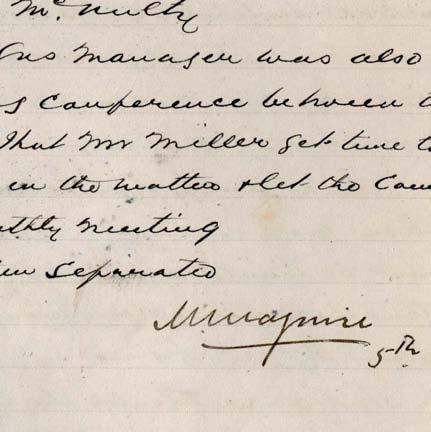 Mc Nulty
Gas Manager was also
Conference between
That Mr Miller get time to
in the matter & let the
thly meeting
separated
M Maguire
5th